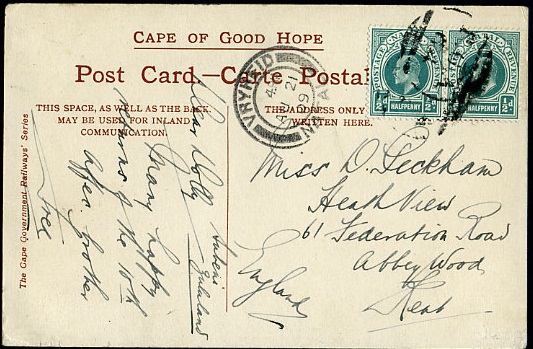 CAPE OF GOOD HOPE
Post Card.—Carte Postale
THIS SPACE, AS WELL AS THE BACK,
MAY BE USED FOR INLAND
COMMUNICATION.
THE ADDRESS ONLY
WRITTEN HERE.
The Cape Government Railways' Series
POSTAGE NATAL REVENUE
½d HALFPENNY ½d
POSTAGE NATAL REVENUE
½d HALFPENNY ½d
VRYHEID
NATAL
21
Dear Dolly
Many happy
returns of the 10th
Affec. brother
Zululand
Miss D. Peckham
Heath View
61 Federation Road
Abbey Wood
Kent
England